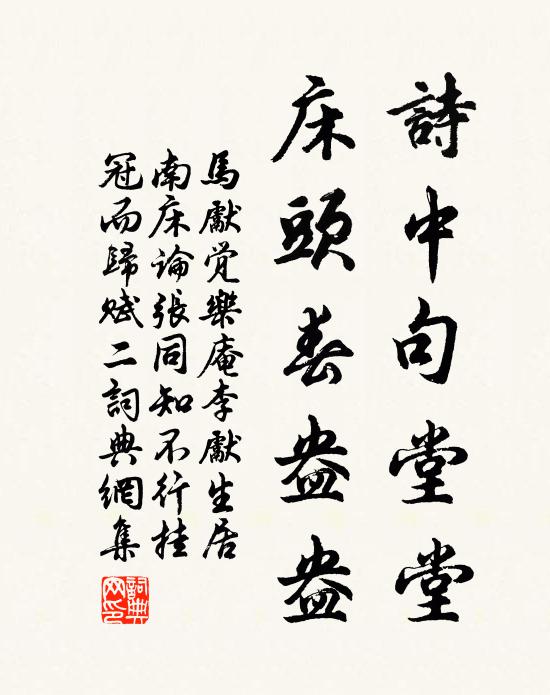 詩中句堂堂
床頭春盎盎
馬獻覚樂庵李獻生居
南床論張同知不行挂
冠而歸賦二詞典網集
詞典網印